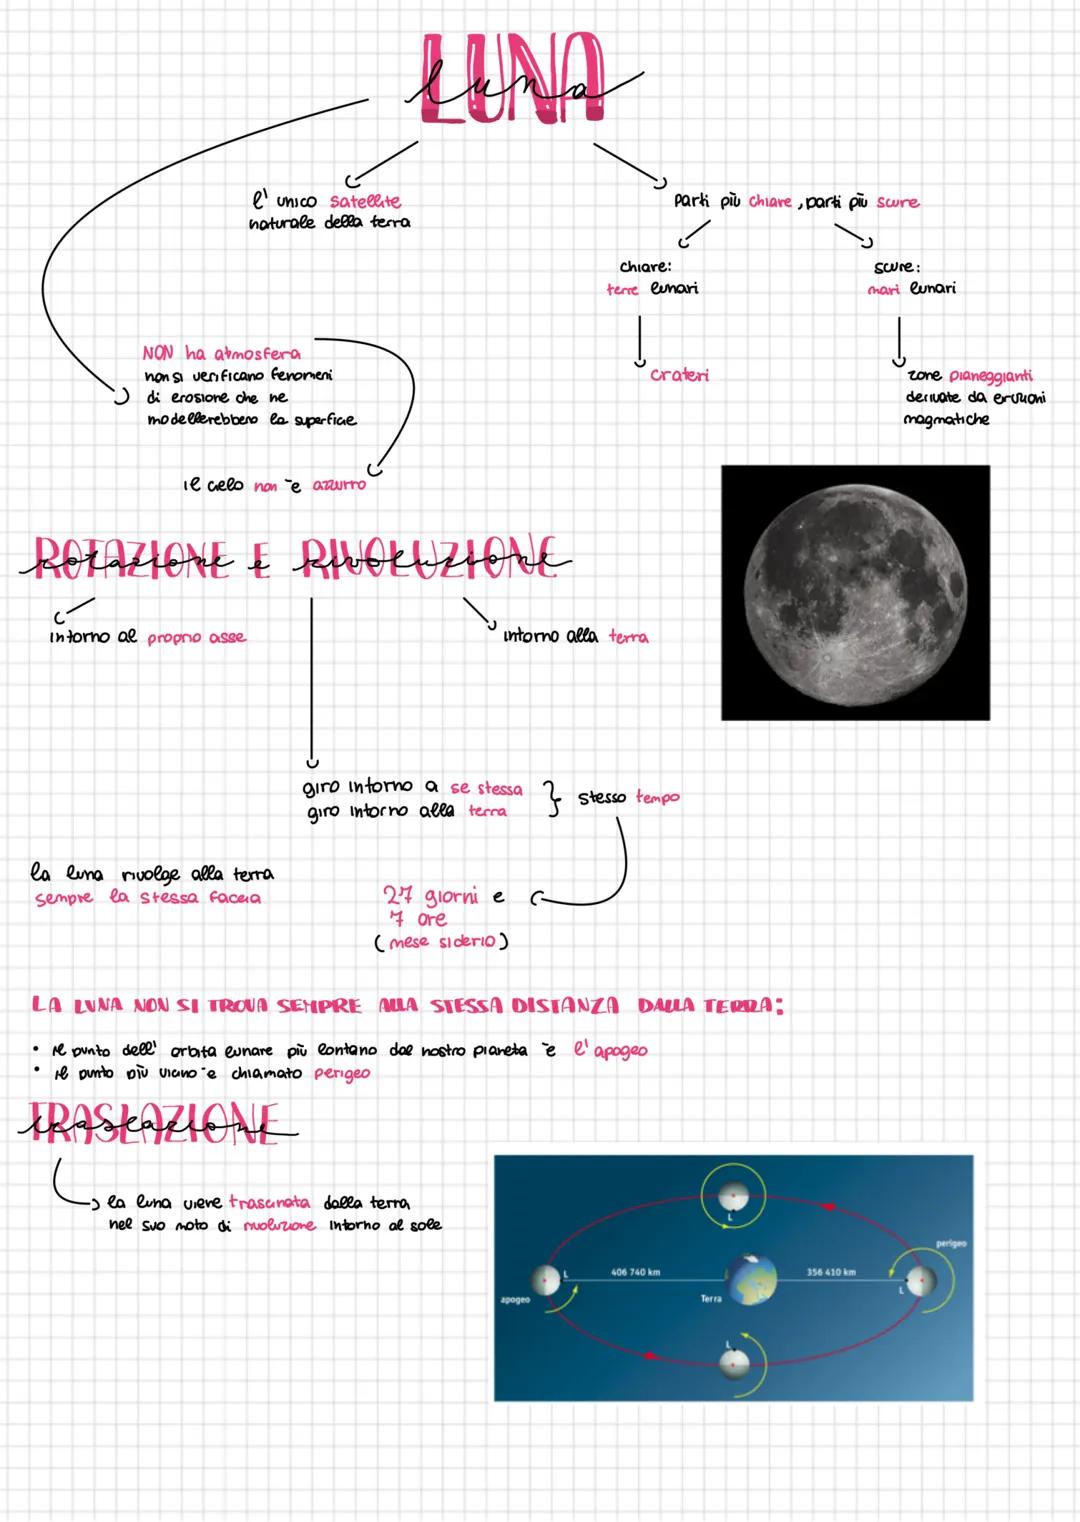 LUNA
luna
l'unico satellite
naturale della terra
Parti più chiare, parti più scure
chiare:
terre lunari
scure:
mari lunari
crateri
zone pianeggianti
derivate da eruzioni
magmatiche
NON ha atmosfera
non si verificano fenomeni
di erosione che ne
modellerebbero la superficie
il cielo non è azzurro
ROTAZIONE E RIVOLUZIONE
rotazione e rivoluzione
intorno al proprio asse
intorno alla terra
giro intorno a se stessa
giro intorno alla terra
} stesso tempo
la luna rivolge alla terra
sempre la stessa faccia
27 giorni e
7 ore
(mese siderio)
LA LUNA NON SI TROVA SEMPRE ALLA STESSA DISTANZA DALLA TERRA:
• il punto dell' orbita lunare più lontano dal nostro pianeta è l'apogeo
• il punto più vicino è chiamato perigeo
TRASLAZIONE
traslazione
la luna viene trascinata dalla terra
nel suo moto di rivoluzione intorno al sole
L
perigeo
L
406 740 km
356 410 km
L
apogeo
Terra
L